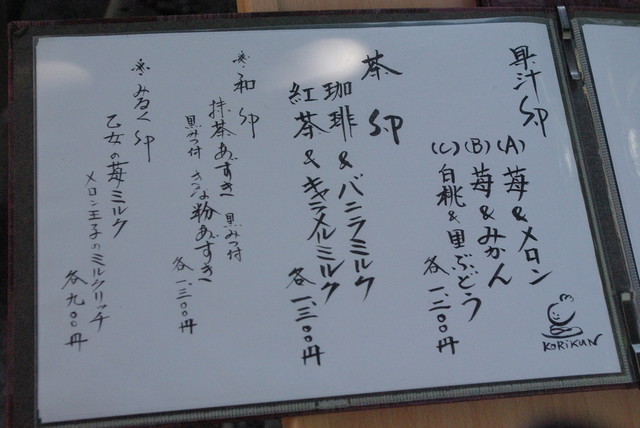 果汁 S.P
(A) 苺&メロン
(B) 苺&みかん
(C) 白桃&黒ぶどう
各一、二〇〇円
茶 S.P
珈琲&バニラミルク
紅茶&キャラメルミルク
各一、三〇〇円
※ 和 SP
抹茶あずき 黒みつ付
黒みつ付 きなこ粉あずき
各一、三〇〇円
※ みるく SP
乙女の苺ミルク
メロン王子のミルクリッチ
各九〇〇円
KORIKUN